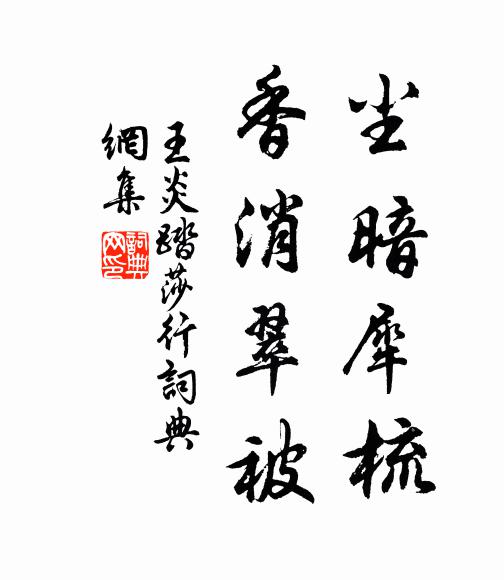 尘暗犀梳
香消翠被
王炎踏莎行詞典
網集
詞典
网印